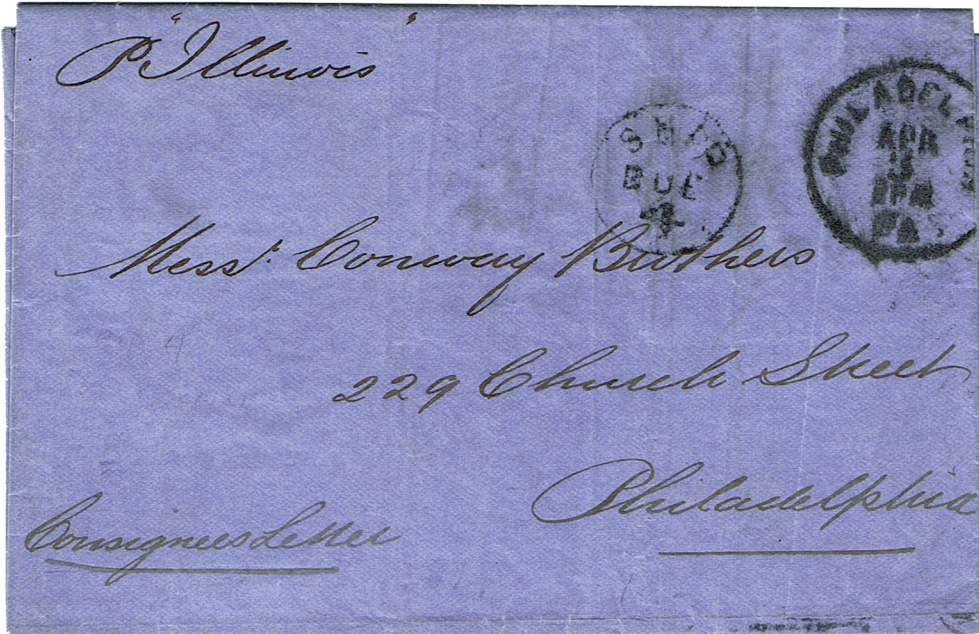 P "Illinois"
SHIP
DUE
PHILADELPHIA
APR
PM
PA
Mess: Conway Brothers
229 Church Street
Philadelphia
Consignees Letter